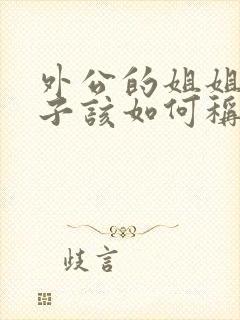 外公的姐姐
子该如何稱
歧言